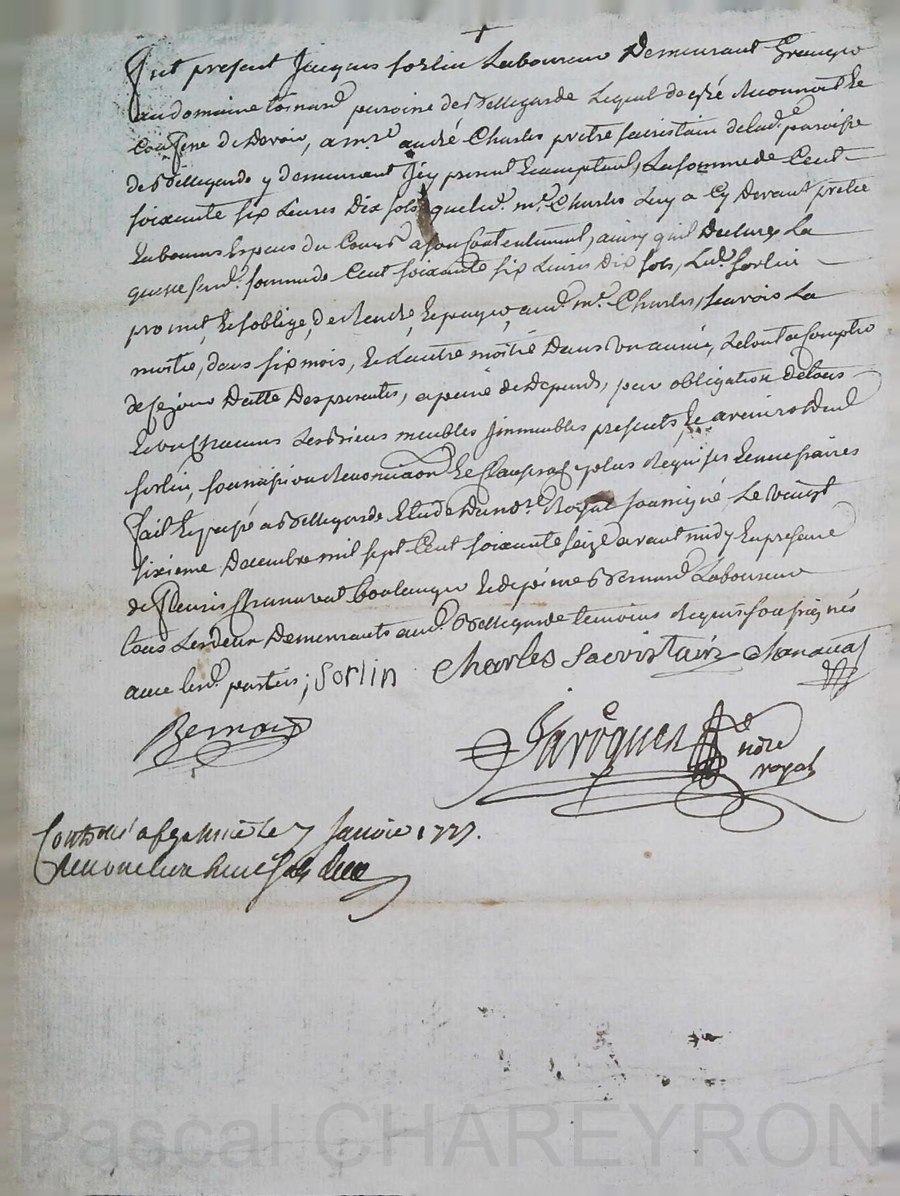 +
fut présent Jacques Sorlin Laboureur Demeurant Granger
au domaine paroisse de Bellegarde Lequel de gré Reconnoit Et
Confesse De Devoir, a mre andré Charles pretre sacristain de lad.e paroisse
de Bellegarde y demeurant Jcy present Et acceptant, La somme de Cent
soixante six Livres Dix sols que led. mre Charles Luy a Cy Devant preté
En bonnes Especes du Cours a son Contentement, ainsy quil Declare, La
quelle susd. somme de Cent soixante six Livres Dix sols, Led. Sorlin
promet, Et soblige, de Rendre, Et payer, aud. mre Charles, scavois La
moitié, dans six mois, Et Lautre moitié Dans Une année, Le tout a Compter
de ce jour Datte Des presentes, a peine de Depends, par obligation de tous
Et un Chacuns Les Biens meubles Jmmeubles presents, Et avenirs dud
Sorlin, soumission Renonciaon Et Clauses plus Requises Et necessaires
fait Et passé a Bellegarde Etude du nore Royal soussigné, Le vingt
sixieme Decembre mil sept Cent soixante seize avant midy En presence
de fleuris Chanavat Boulanger Et de Bernard Laboureur
tous Les deux Demeurants aud. Bellegarde temoins Requis soussignés
avec lesd. parties; Sorlin Charles Sacristain Chanavat
Bernard
nore
royal
Controllé a le 7 Janvier 1777.